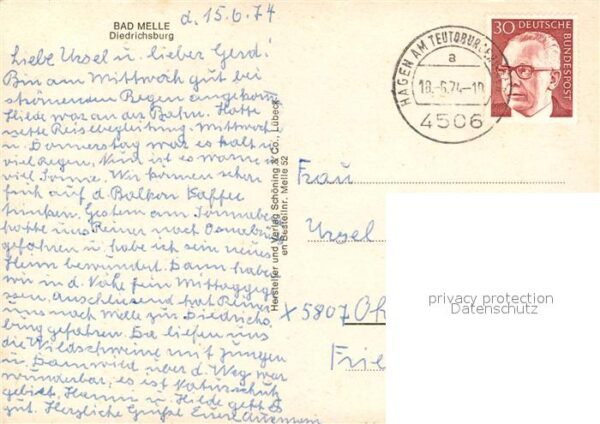 BAD MELLE
Diedrichsburg
d. 15.6.74
Liebe Ursel u. lieber Gerd!
Bin am Mittwoch gut bei
strömenden Regen angekom.
Hilde war an der Bahn. Hatte
nette Reisebegleitung. Mittwoch
u. Donnerstag war es kalt u.
viel Regen. Nun ist es warm u.
viel Sonne. Wir konnten schon
früh auf d. Balkon Kaffee
trinken. Gestern am Sonnabe
hatte uns Reiner nach Osnabrü
gefahren u. habe ich sein neues
Heim bewundert. Dann habe
wir in d. Nähe fein Mittaggeges
sen. Anschliessend hat Reiner
uns nach Melle zur Diedrichs
burg gefahren. Da liefen uns
die Wildschweine mit Jungen
u. Damwild über d. Weg war
wunderbar, es ist Naturschutz
gebiet. Hanni u. Hilde geht es
gut. Herzliche Grüße Eure
Hersteller und Verlag Schöning & Co., Lübeck
en Bestellnr. Melle 52
HAGEN AM TEUTOBUR
a
18.-6.74-18
4506
30 DEUTSCHE
BUNDESPOST
Frau
Ursel
x 5807 Oh
Frie
privacy protection
Datenschutz